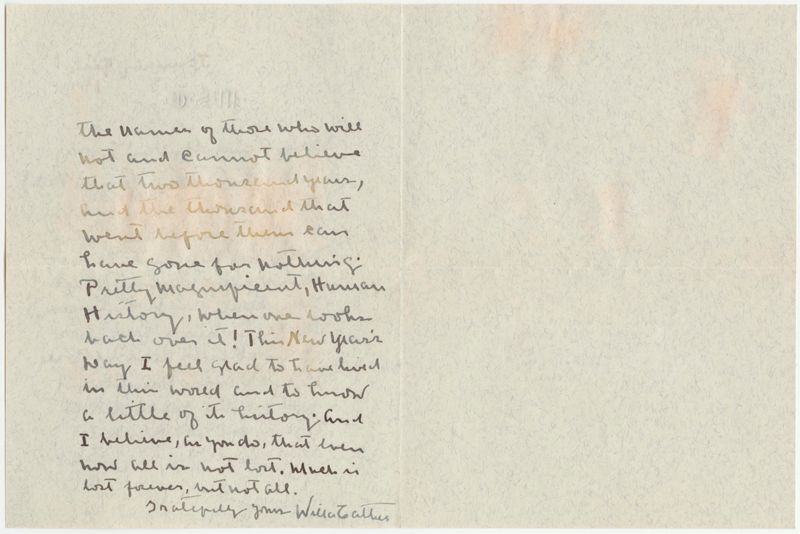 the names of those who will
not and cannot believe
that two thousand years,
and the thousand that
went before them can
have gone for nothing.
Pretty magnificent, Human
History, when one looks
back over it! This New Year's
Day I feel glad to have lived
in this world and to know
a little of its history. And
I believe, as you do, that even
now all is not lost. Much is
lost forever, but not all.
Gratefully yours Willa Cather